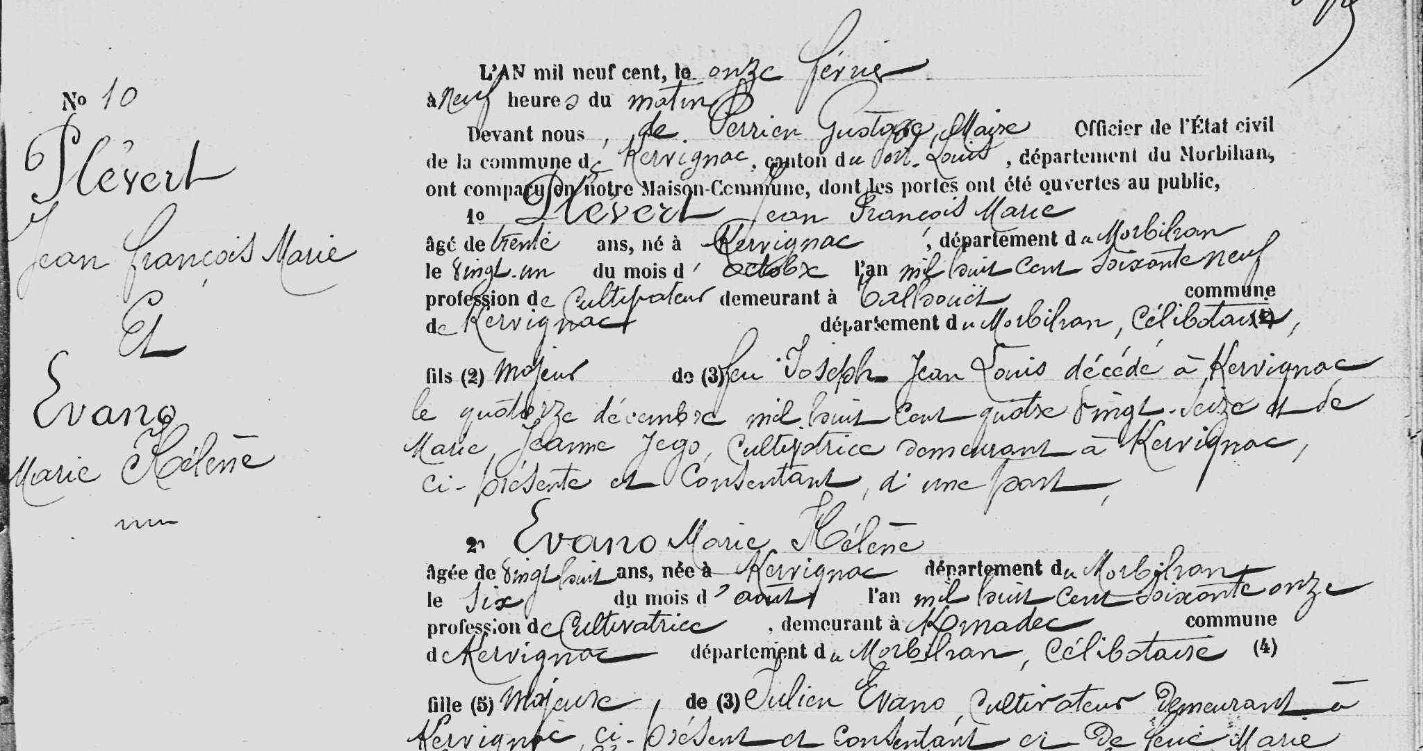 No 10
Plévert
Jean François Marie
Et
Evano
Marie Hélène
L'AN mil neuf cent, le onze février
à neuf heures du matin
Devant nous, de Perrien Gustave, Maire Officier de l'État civil
de la commune de Kervignac, canton du Port-Louis, département du Morbihan,
ont comparu en notre Maison-Commune, dont les portes ont été ouvertes au public,
1o Plévert Jean François Marie
âgé de trente ans, né à Kervignac, département du Morbihan
le vingt-un du mois d'octobre l'an mil huit cent soixante neuf
profession de Cultivateur demeurant à commune
de Kervignac département du Morbihan, Célibataire,
fils (2) majeur de (3) feu Joseph Jean Louis décédé à Kervignac
le quatorze décembre mil huit cent quatre vingt-seize et de
Marie Jeanne Jego, Cultivatrice demeurant à Kervignac,
ci-présente et Consentant, d'une part,
2o Evano Marie Hélène
âgée de vingt huit ans, née à Kervignac département du Morbihan
le six du mois d'août l'an mil huit cent soixante onze
profession de Cultivatrice, demeurant à commune
de Kervignac département du Morbihan, Célibataire (4)
fille (5) majeure, de (3) Julien Evano, Cultivateur demeurant à
Kervignac, ci-présent et consentant et de feue Marie